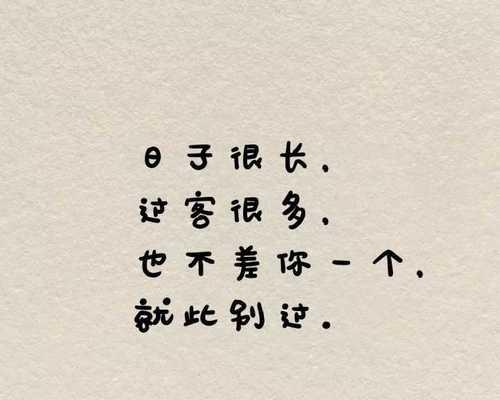 日子很长，
过客很多，
也不差你一个，
就此别过。